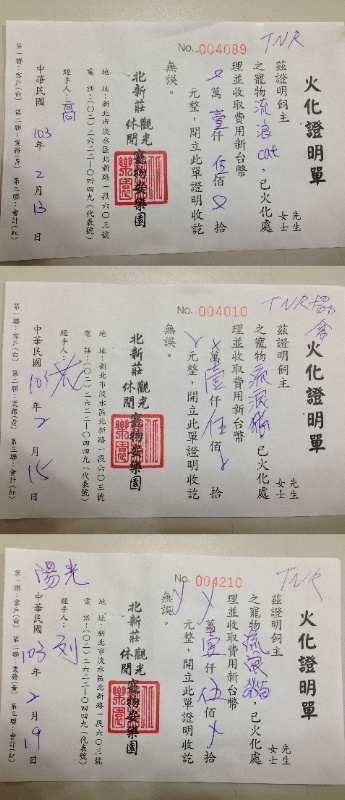 No. 004089
TNR
火化證明單
茲證明飼主
先生
女士
之寵物流浪cat,已火化處
理並收取費用新台幣
萬壹仟伍佰 拾
元整,開立此單證明收訖
無誤。
北新莊 觀光休閒 寵物安樂園
地 址:新北市淡水區北新路一段六0三號
電 話:(0二)二六二二-0四四九(代表號)
經手人:高
中華民國 103 年 2 月 13 日
第一聯:客戶(白)
No. 004010
TNR
火化證明單
茲證明飼主
先生
女士
之寵物流浪貓,已火化處
理並收取費用新台幣
萬壹仟伍佰 拾
元整,開立此單證明收訖
無誤。
北新莊 觀光休閒 寵物安樂園
地 址:新北市淡水區北新路一段六0三號
電 話:(0二)二六二二-0四四九(代表號)
經手人:
中華民國 103 年 2 月 15 日
第一聯:客戶(白)
No. 004210
TNR
火化證明單
茲證明飼主
先生
女士
之寵物流浪貓,已火化處
理並收取費用新台幣
萬壹仟伍佰 拾
元整,開立此單證明收訖
無誤。
北新莊 觀光休閒 寵物安樂園
地 址:新北市淡水區北新路一段六0三號
電 話:(0二)二六二二-0四四九(代表號)
經手人:
陽光
中華民國 103 年 2 月 19 日
第一聯:客戶(白)